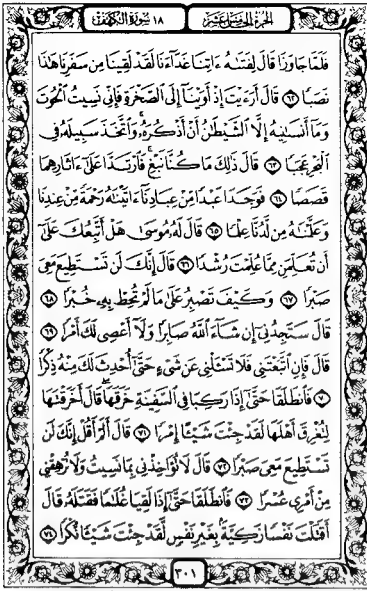 الجزء الخامس عشر ١٨ سورة الكهف
فَلَمَّا جَاوَزَا قَالَ لِفَتَىٰهُ ءَاتِنَا غَدَآءَنَا لَقَدْ لَقِينَا مِن سَفَرِنَا هَٰذَا
نَصَبًا ٦٢ قَالَ أَرَءَيْتَ إِذْ أَوَيْنَآ إِلَى ٱلصَّخْرَةِ فَإِنِّى نَسِيتُ ٱلْحُوتَ
وَمَآ أَنسَىٰنِيهُ إِلَّا ٱلشَّيْطَٰنُ أَنْ أَذْكُرَهُۥ ۚ وَٱتَّخَذَ سَبِيلَهُۥ فِى
ٱلْبَحْرِ عَجَبًا ٦٣ قَالَ ذَٰلِكَ مَا كُنَّا نَبْغِ ۚ فَٱرْتَدَّا عَلَىٰٓ ءَاثَارِهِمَا
قَصَصًا ٦٤ فَوَجَدَا عَبْدًا مِّنْ عِبَادِنَآ ءَاتَيْنَٰهُ رَحْمَةً مِّنْ عِندِنَا
وَعَلَّمْنَٰهُ مِن لَّدُنَّا عِلْمًا ٦٥ قَالَ لَهُۥ مُوسَىٰ هَلْ أَتَّبِعُكَ عَلَىٰٓ
أَن تُعَلِّمَنِ مِمَّا عُلِّمْتَ رُشْدًا ٦٦ قَالَ إِنَّكَ لَن تَسْتَطِيعَ مَعِىَ
صَبْرًا ٦٧ وَكَيْفَ تَصْبِرُ عَلَىٰ مَا لَمْ تُحِطْ بِهِۦ خُبْرًا ٦٨
قَالَ سَتَجِدُنِىٓ إِن شَآءَ ٱللَّهُ صَابِرًا وَلَآ أَعْصِى لَكَ أَمْرًا ٦٩
قَالَ فَإِنِ ٱتَّبَعْتَنِى فَلَا تَسْـَٔلْنِى عَن شَىْءٍ حَتَّىٰٓ أُحْدِثَ لَكَ مِنْهُ ذِكْرًا
٧٠ فَٱنطَلَقَا حَتَّىٰٓ إِذَا رَكِبَا فِى ٱلسَّفِينَةِ خَرَقَهَا ۖ قَالَ أَخَرَقْتَهَا
لِتُغْرِقَ أَهْلَهَا لَقَدْ جِئْتَ شَيْـًٔا إِمْرًا ٧١ قَالَ أَلَمْ أَقُلْ إِنَّكَ لَن
تَسْتَطِيعَ مَعِىَ صَبْرًا ٧٢ قَالَ لَا تُؤَاخِذْنِى بِمَا نَسِيتُ وَلَا تُرْهِقْنِى
مِنْ أَمْرِى عُسْرًا ٧٣ فَٱنطَلَقَا حَتَّىٰٓ إِذَا لَقِيَا غُلَٰمًا فَقَتَلَهُۥ قَالَ
أَقَتَلْتَ نَفْسًا زَكِيَّةًۢ بِغَيْرِ نَفْسٍ لَّقَدْ جِئْتَ شَيْـًٔا نُّكْرًا ٧٤
٣٠١